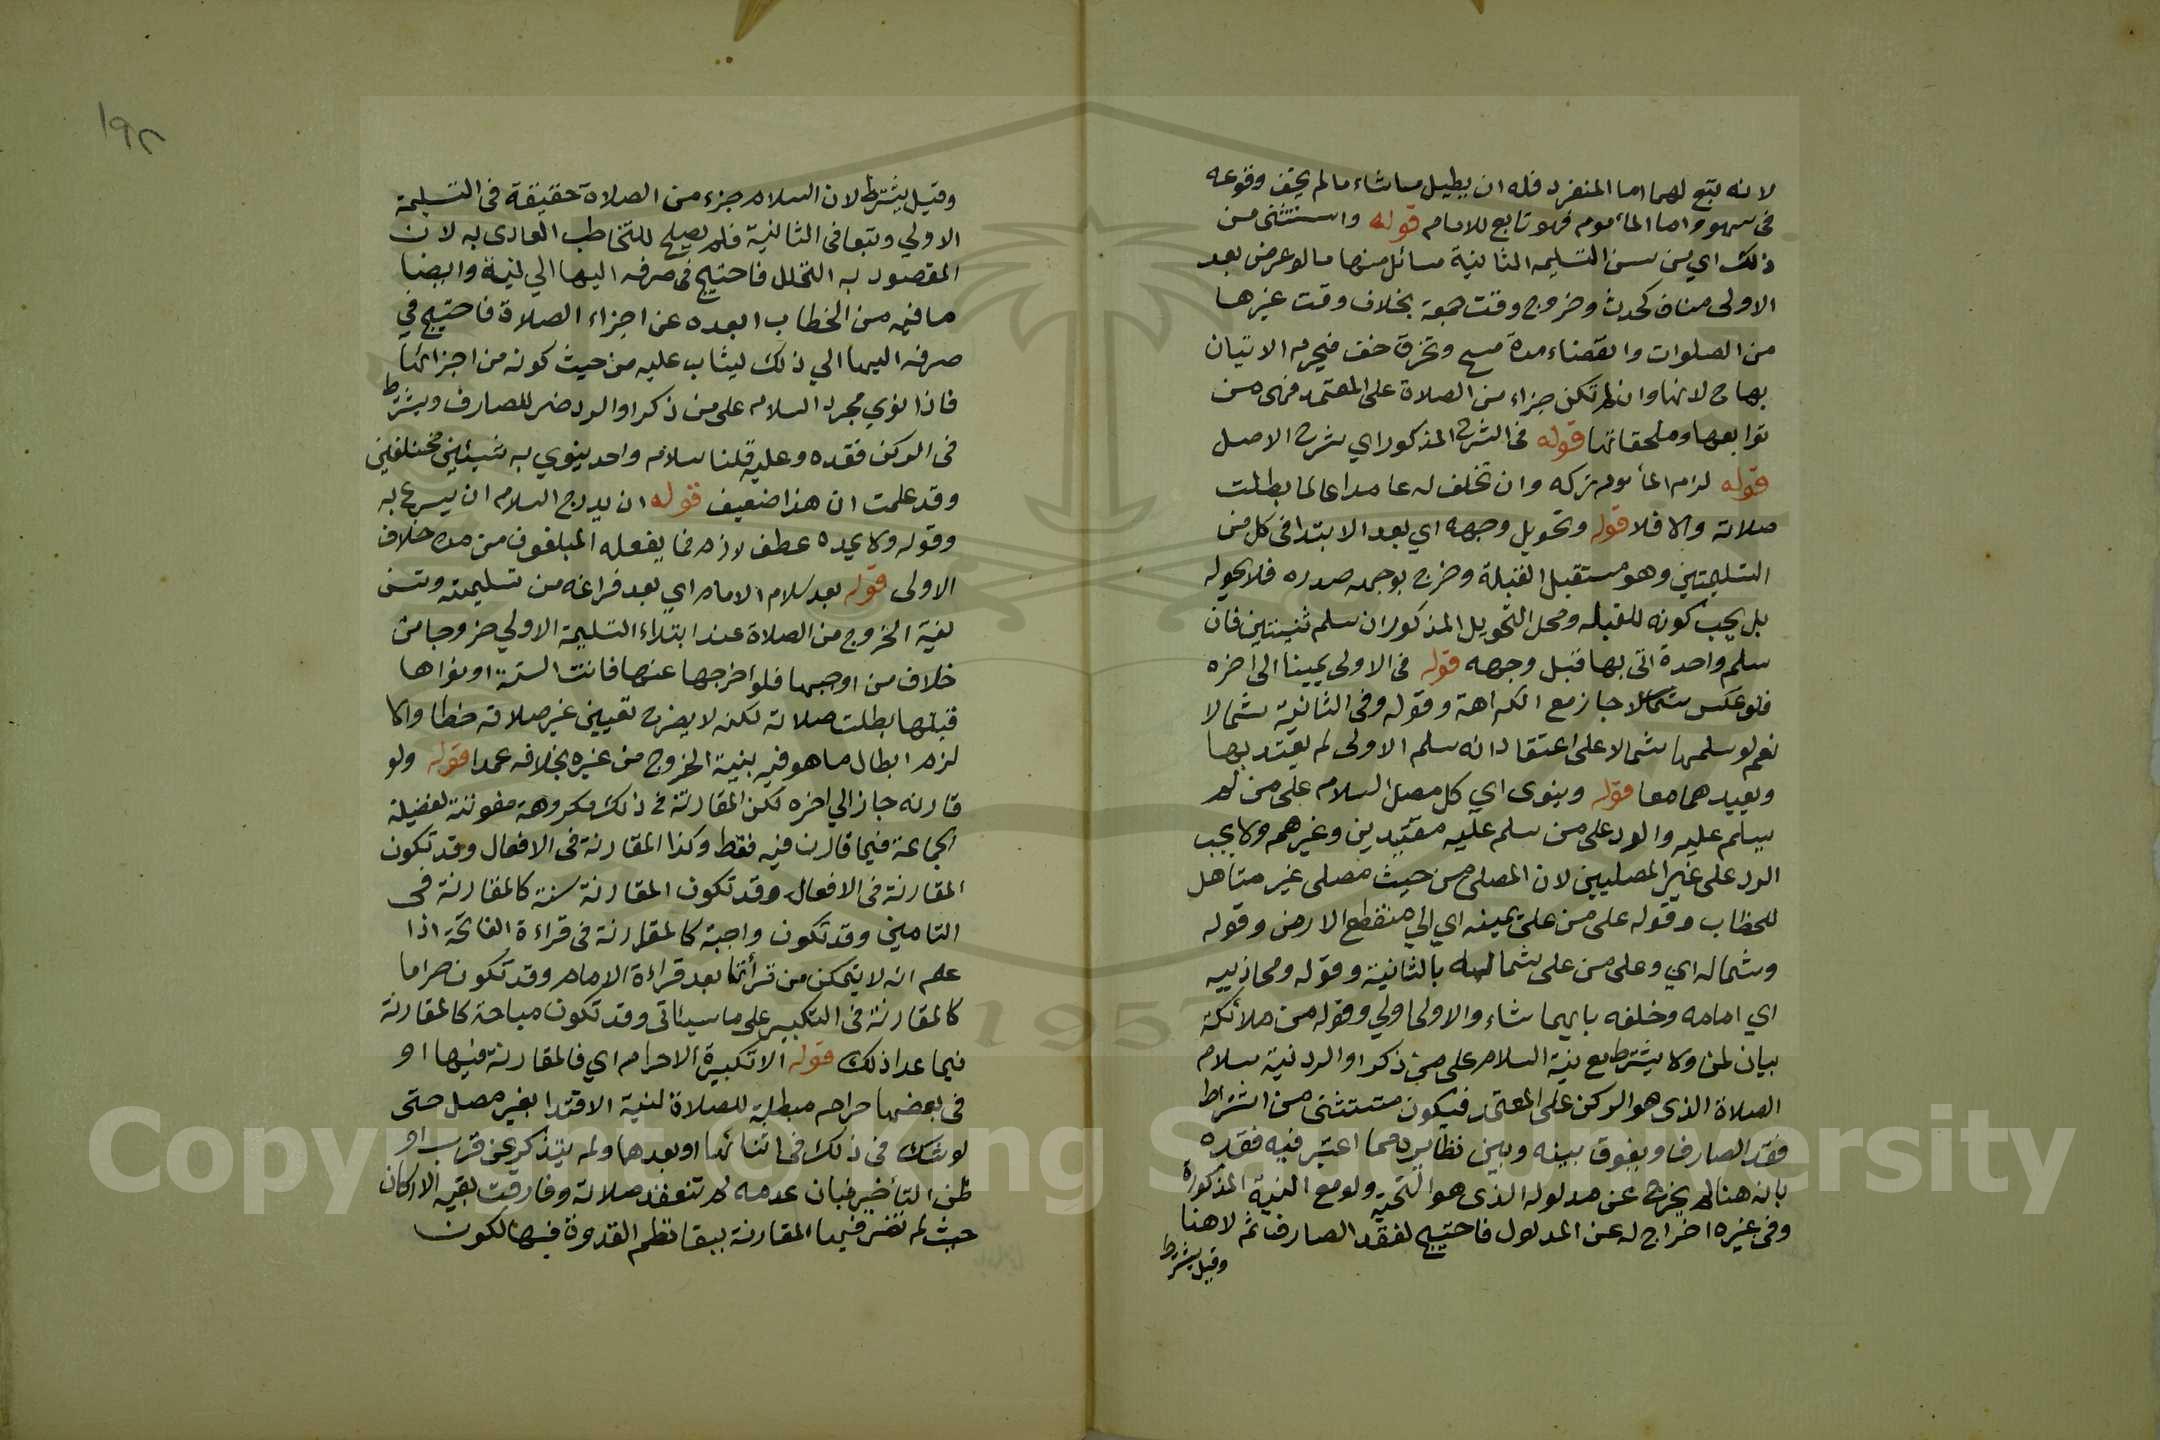 لانه تبع لهما اما المنفرد فله ان يطيل ما شاء ما لم يخف وقوعه
في سهو واما المأموم فهو تابع للامام قوله واستثنى من
ذلك اي من سن التسليمه الثانية مسائل منها ما لو عرض بعد
الاولى مناف كحدث وخروج وقت جمعة بخلاف وقت غيرها
من الصلوات وانقضاء مدة مسح وتخرق خف فيحرم الاتيان
بها ح لانها وان لم تكن جزاء من الصلاة على المعتمد فهى من
توابعها وملحقاتها قوله في الشرح المذكور اي شرح الاصل
قوله لزم المأموم تركه وان تخلف له عامدا عالما بطلت
صلاته والا فلا قوله وتحويل وجهه اي بعد الابتدا في كل من
التسليمتين وهو مستقبل القبلة وخرج بوجهه صدره فلا يحوله
بل يجب كونه للقبله ومحل التحويل المذكور ان سلم ثنتين فان
سلم واحدة اتى بها قبل وجهه قوله في الاولى يمينا الى اخره
فلو عكس شمالا جاز مع الكراهة وقوله وفي الثانية شمالا
نعم لو سلمها شمالا على اعتقاد انه سلم الاولى لم يعتد بها
ويعيدهما معا قوله وينوى اي كل مصل السلام على من لم
يسلم عليه والرد على من سلم عليه مقتدين وغيرهم ولا يجب
الرد على غير المصليين لان المصلى من حيث مصلى غير متاهل
للخطاب وقوله على من على يمينه اي الي منقطع الارض وقوله
وشماله اي وعلى من على شماله بالثانية وقوله ومحاذييه
اي امامه وخلفه بايهما شاء والاولى اولي وقوله من ملائكة
بيان لمن ولا يشترط مع نية السلام على من ذكر او الرد نية سلام
الصلاة الذى هو الركن على المعتمد فيكون مستثنى من اشتراط
فقد الصارف ويفرق بينه وبين نظايره مما اعتبر فيه فقده
بانه هنا لم يخرج عن مدلوله الذى هو التحية ولو مع النية المذكورة
وفي غيره اخراج له عن المدلول فاحتيج لفقد الصارف ثم لا هنا
وقيل يشترط
١٩٢
وقيل يشترط لان السلام جزء من الصلاة حقيقة في التسليمة
الاولي وتبعا في الثانية فلم يصلح للتخاطب العادى به لان
المقصود به التحلل فاحتيج في صرفه اليها الي لنية وايضا
ما فيه من الخطاب ابعده عن اجزاء الصلاة فاحتيج في
صرفه اليها الي ذلك ليثاب عليه من حيث كونه من اجزائها
فاذا نوي مجرد السلام على من ذكر او الرد ضر للصارف ويشترط
في الركن فقده وعليه قلنا سلام واحد ينوي به شيئين مختلفين
وقد علمت ان هذا ضعيف قوله ان يدرج السلام ان يسرع به
وقوله ولا يمده عطف لازم فما يفعله المبلغون من مده خلاف
الاولى قوله بعد سلام الامام اي بعد فراغه من تسليمته وتسن
لفية الخروج من الصلاة عند ابتداء التسليمة الاولي خروجا من
خلاف من اوجبها فلو اخرجها عنها فاتت السنة او نواها
قبلها بطلت صلاته لكن لا يضرح تعيين غير صلاته خطا والا
لزم ابطال ما هو فيه بنية الخروج من غيره بخلافه عمدا قوله ولو
قارنه جاز الي اخره لكن المقارنة في ذلك مكروهة مفوتة لفضيلة
الجماعة فيما قارن فيه فقط وكذا المقارنة في الافعال وقد تكون
المقارنة في الافعال وقد تكون المقارنة سنة كالمقارنة في
التامين وقد تكون واجبة كالمقارنة في قراءة الفاتحة اذا
علم انه لا يتمكن من قرأتها بعد قراءة الامام وقد تكون حراما
كالمقارنة في التكبير على ما سيأتى وقد تكون مباحة كالمقارنة
فيما عدا ذلك قوله الا تكبيرة الاحرام اي فالمقارنة فيها او
في بعضها حرام مبطلة للصلاة لنية الاقتدا بغير مصل حتى
لو شك في ذلك في اثنائها او بعدها ولم يتذكر عن قرب او
ظن التأخير فبان عدمه لم تنعقد صلاته وفارقت بقية الاركان
حيث لم تضر فيها المقارنة ببقا نظم القدوة فيها لكون